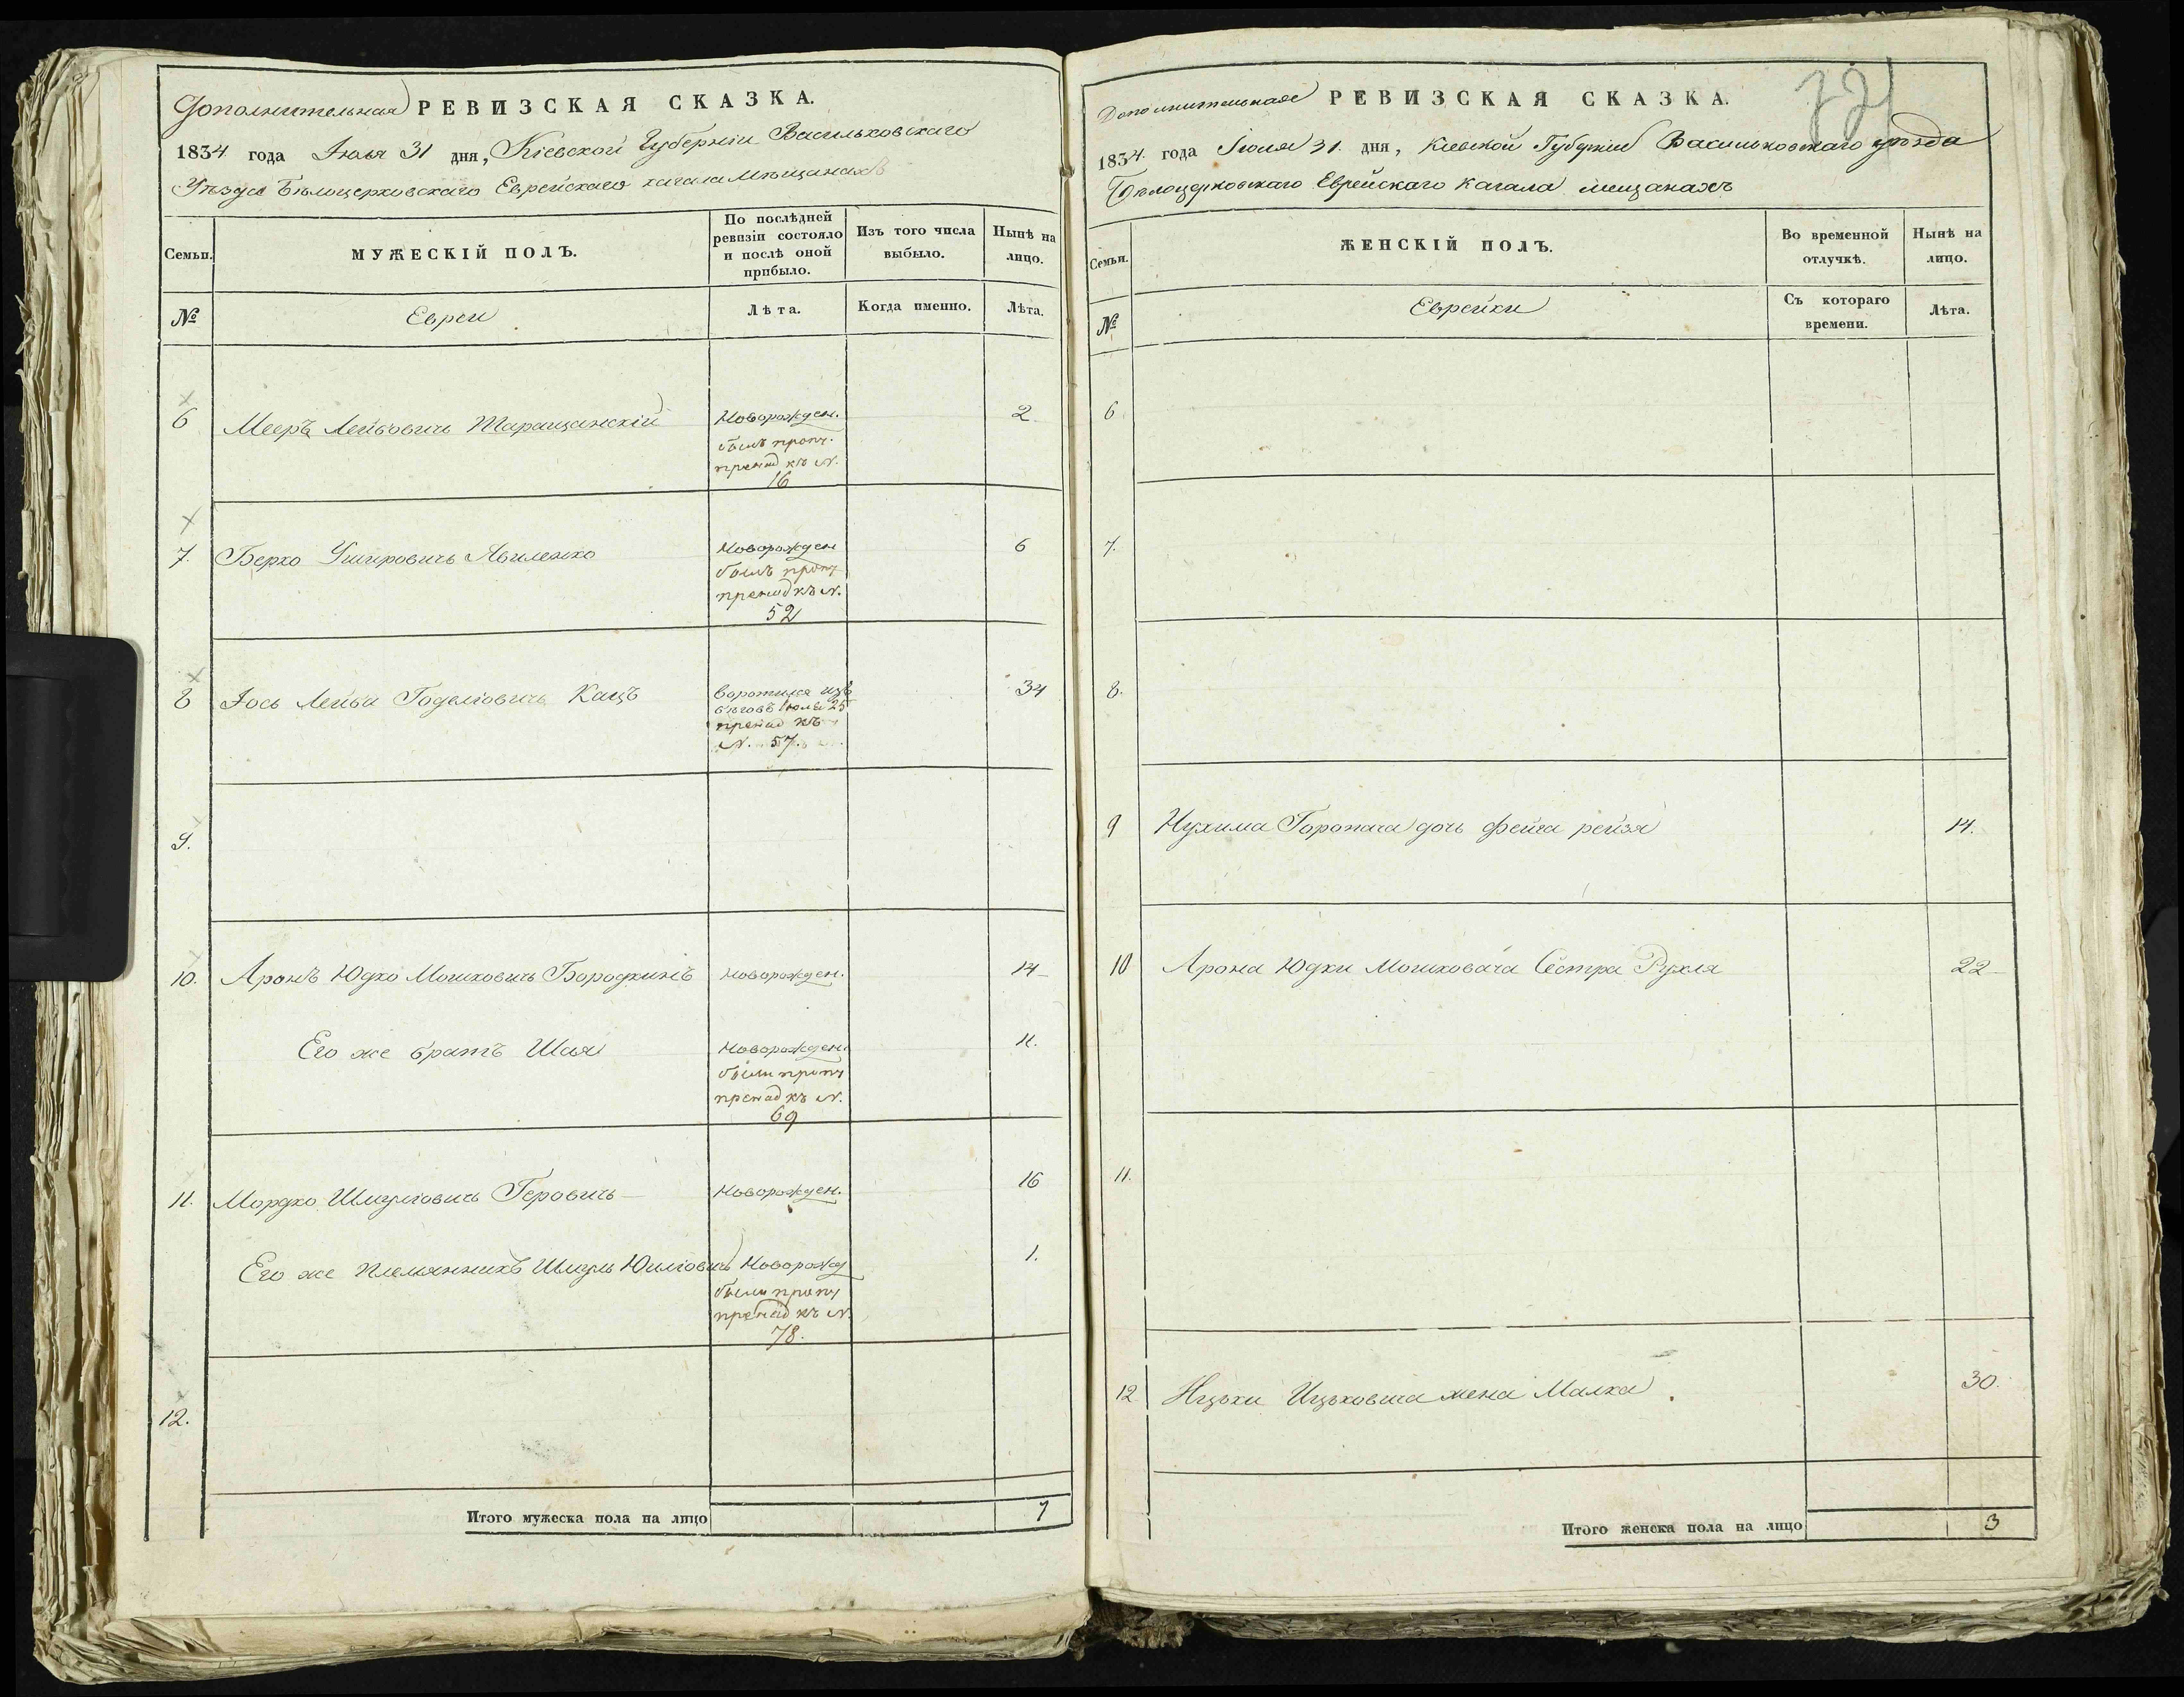 Дополнительная РЕВИЗСКАЯ СКАЗКА.
1834 года Іюля 31 дня, Кіевской Губерніи Васильковскаго
Уѣзда Бѣлоцерковскаго Еврейскаго кагала Мѣщанахъ
Семьи.
МУЖЕСКІЙ ПОЛЪ.
По послѣдней
ревизіи состояло
и послѣ оной
прибыло.
Изъ того числа
выбыло.
Нынѣ на
лицо.
№
Евреи
Лѣта.
Когда именно.
Лѣта.
6 Мееръ Лейбовичъ Таращанскій Новорожден. 2
былъ проп.
принад къ N.
16
7. Берко Ушировичъ Явиленко Новорожден 6
былъ проп
принад къ N.
52
8 Іось Лейби Годелıовичъ Кацъ воротился изъ 34
бѣговъ Іюля 25
принад къ
N. 57.
9.
10. Аронъ Юдко Мошковичъ Бородкинъ Новорожден. 14
Его же братъ Шая Новорожден. 11.
были проп
принад къ N.
69
11. Мордко Шмуліовичъ Геровичъ Новорожден. 16
Его же племянникъ Шмуль Юиліовичъ Новорожд 1.
были проп
принад къ N.
78.
12.
Итого мужеска пола на лицо 7
72
Дополнительная РЕВИЗСКАЯ СКАЗКА.
1834 года Іюля 31 дня, Кіевской Губерніи Васильковскаго уѣзда
Бѣлоцерковскаго Еврейскаго Кагала мещанахъ
Семьи.
ЖЕНСКІЙ ПОЛЪ.
Во временной
отлучкѣ.
Нынѣ на
лицо.
№
Еврейки
Съ котораго
времени.
Лѣта.
6
7.
8.
9 Нухима Горопача дочь Фейга рейзя 14.
10 Арона Юдки Мошковача Сестра Рухля 22
11.
12 Ицьки Ицьковича жена Малка. 30.
Итого женска пола на лицо 3